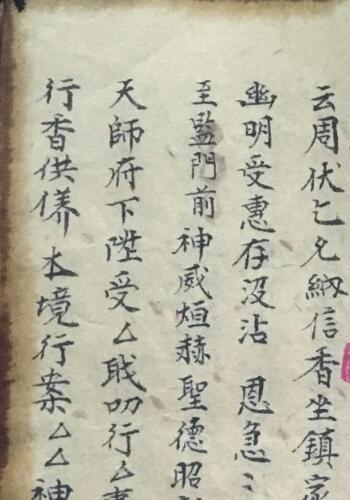 云周伏乞允納信香坐鎮家
幽明受惠存沒沾 恩急〻
至監門前神威烜赫聖德昭
天師府下陞受△職叨行△事
行香供養 本境行案△△神